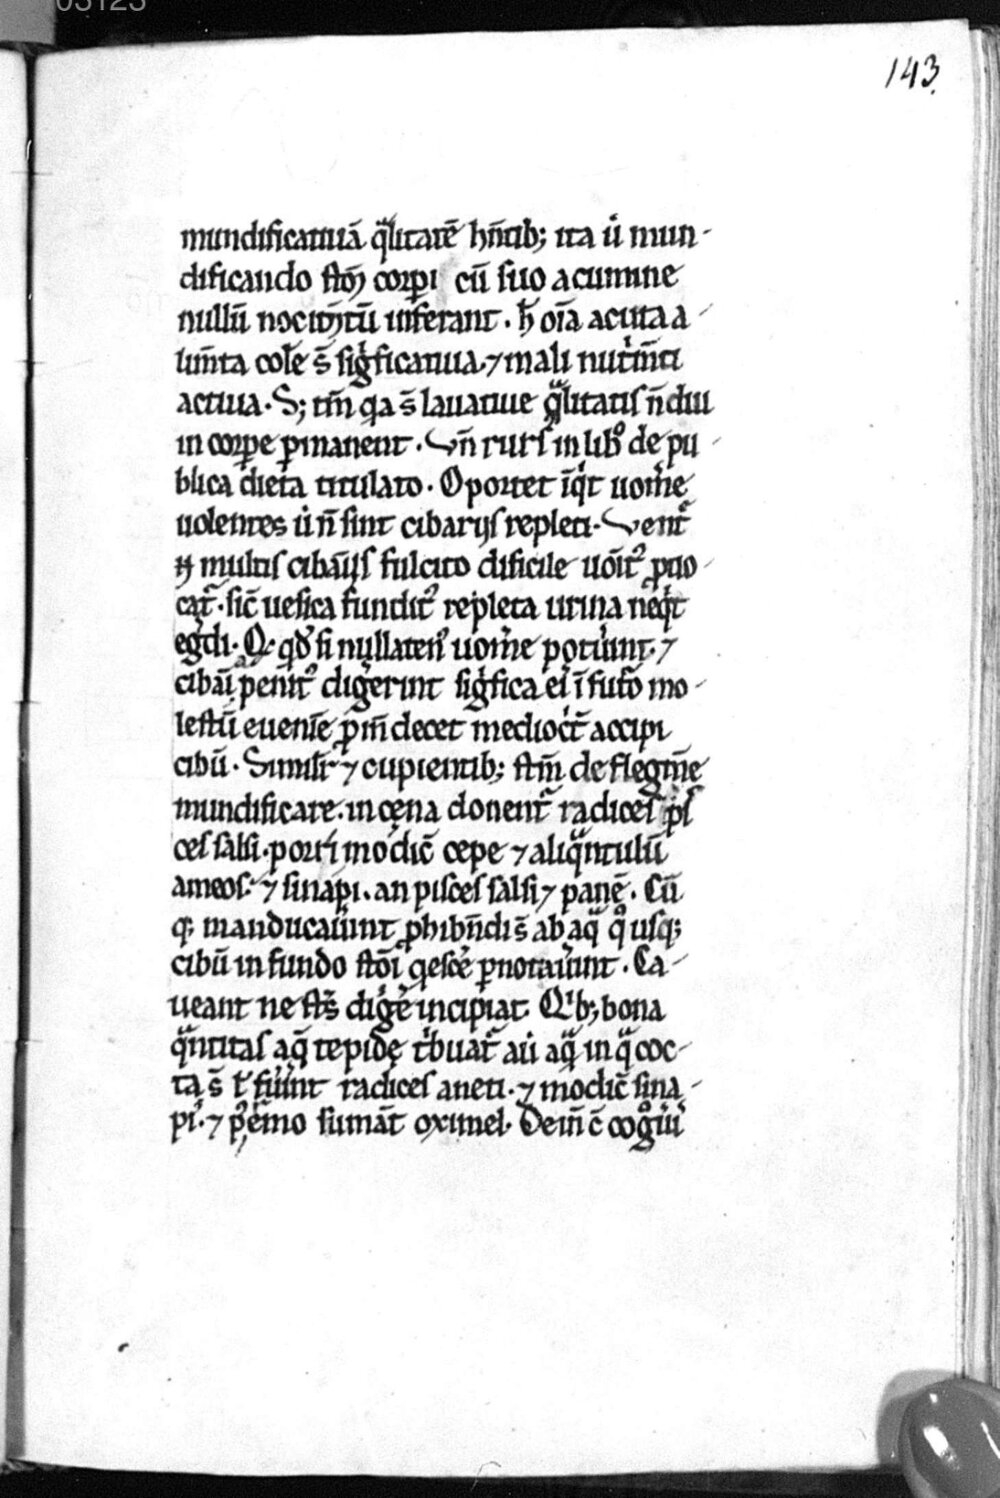 03123
143
mundificatiuā q̄litatē hñtib; ita ů mun-
dificando stoɱ corpi cū suo acumine
nullū nocuɱtū inferant. h̄ oīa acuta a-
lim̄ta cole s̄ sigͥficatiua. ⁊ mali nutͥm̄ti
actiua. S; tm̄ qa s̄ lauatiue q̄litatis n̄ diu
in corpe pmanent. Vn̄ rurſ in libͦ de pu-
blica dieta titulato. Oportet īqͥt uomͤe
uolentes ů n̄ sint cibarijs repleti. Ventͬ
multis cibar̄ijs fulcito dificile uōitͦ puo-
cat͛. sic̄ uesica fundit repleta urina neqͥt
egͤdi. qđ si nullatenꝰ uomͤe potůint. ⁊
cibaɱ penitꝰ digerint sigͥfica eiͥ ī futō mo-
lestū euenīe pm̄ decet mediocͥt̄ accipi
cibū. Similꝛ ⁊ cupientib; stm̄ de flegm̄e
mundificare. in cęna donent͛ radices pis
ces salsi. porri modic̄ cepe ⁊ aliq̄ntulū
ameos. ⁊ sinapi. an pisces salsi ⁊ panē. Cū
q; manducauͥint phibn̄di s̄ ab aq̄ qͦ usq;
cibū in fundo stōi qescͤe pnotauͥint. Ca-
ueant ne sts̄ digͤe incipiat. Qͥb; bona
q̄ntitas aq̄ tepidę tͥbuat͛ aů aq̄ in q̄ coc-
ta s̄ ł fuͥint radices aneti. ⁊ modic̄ sina-
pi. ⁊ pꝰēmo sumāt oximel. Dein̄ c̄ cogͦuͥ